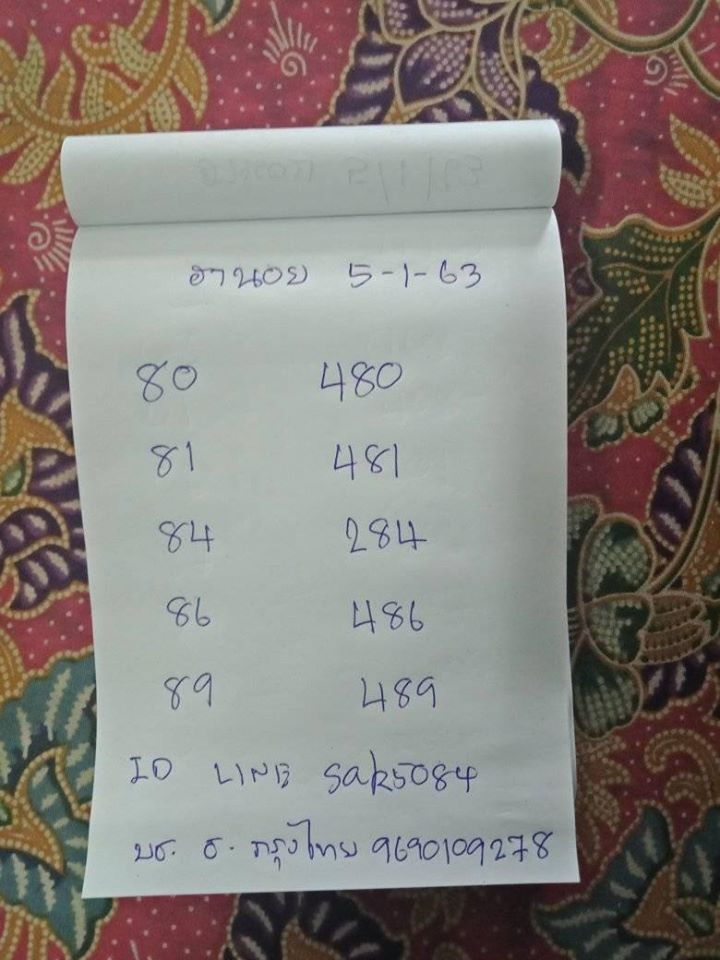 ฮานอย 5-1-63
80 480
81 481
84 284
86 486
89 489
ID LINE Sak5084
บช. ธ. กรุงไทย 9690109278